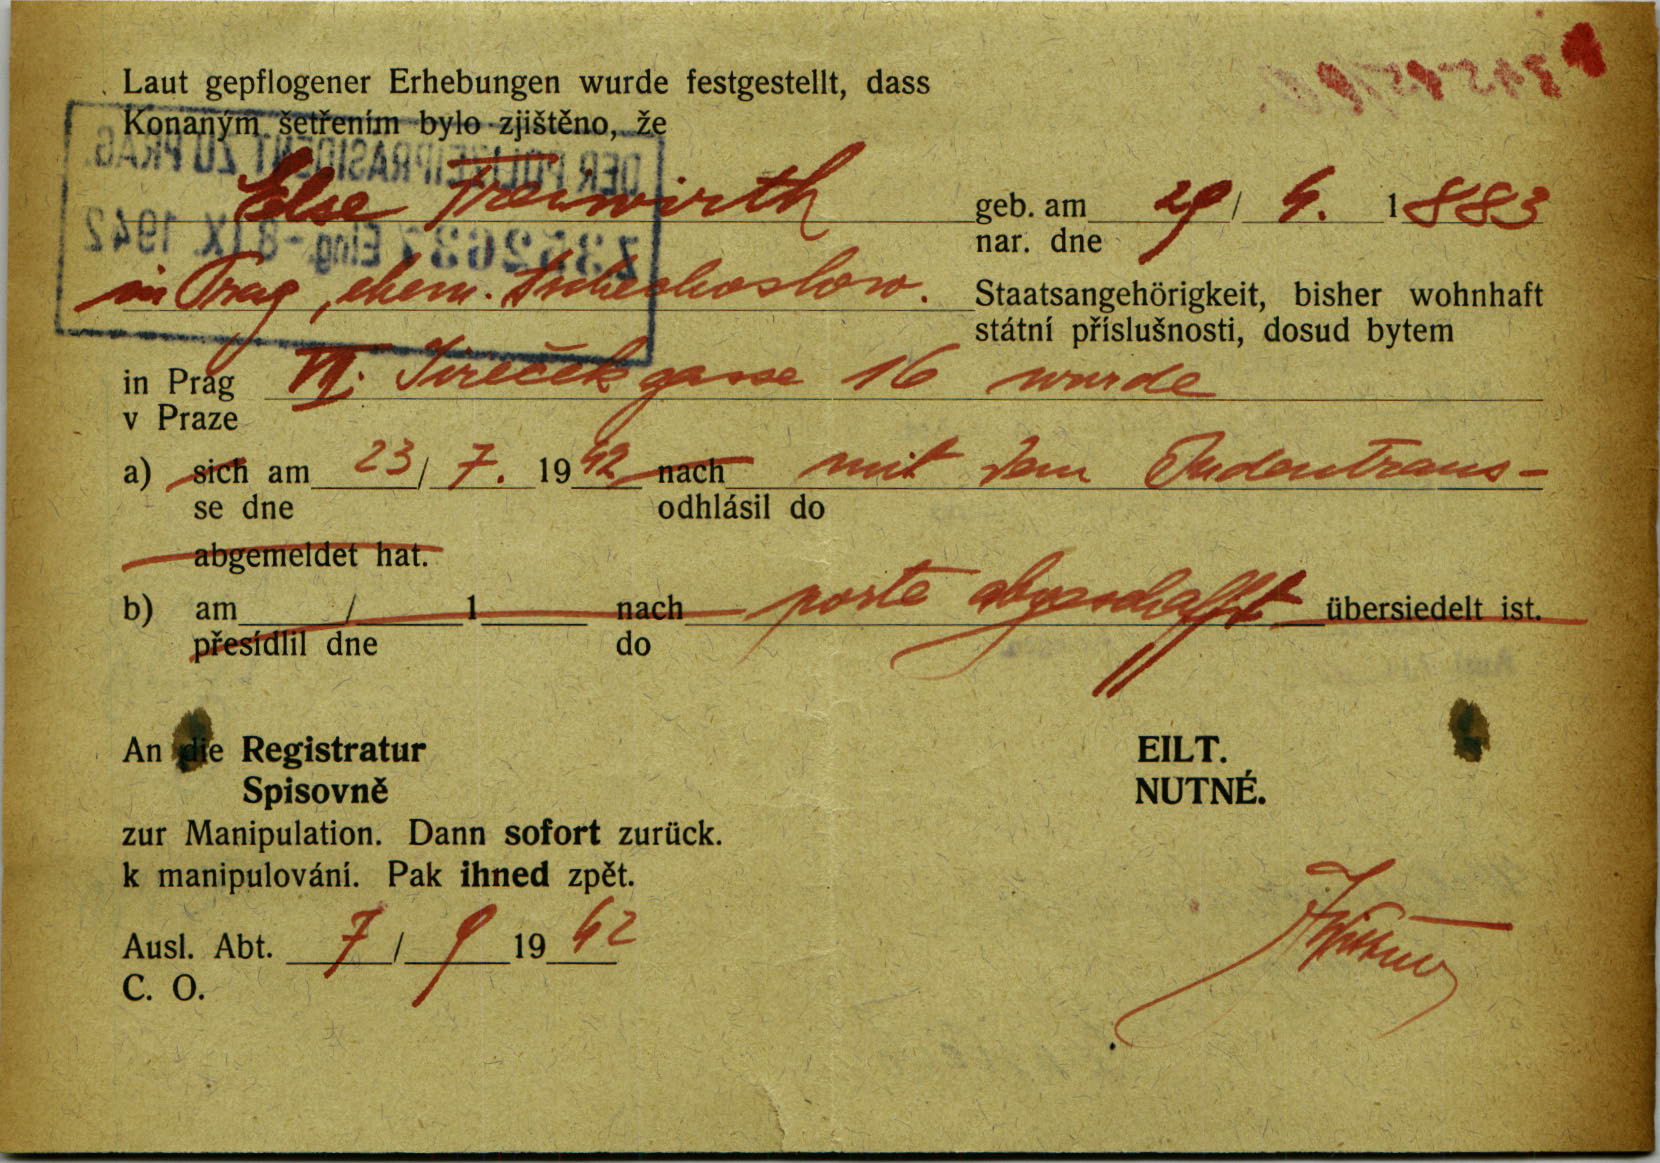 Laut gepflogener Erhebungen wurde festgestellt, dass
Konaným šetřením bylo zjištěno, že
DER POLIZEIPRÄSIDENT ZU PRAG.
Else Freiwirth geb. am 29/ 4. 1883
nar. dne
Z352637 Eing. - 8. IX. 1942
in Prag, ehem. tschechoslow. Staatsangehörigkeit, bisher wohnhaft
státní příslušnosti, dosud bytem
in Prag VII. Jireček gasse 16 wurde
v Praze
a) sich am 23/ 7. 1942 nach mit dem Judentrans-
se dne odhlásil do
abgemeldet hat.
b) am / 1 nach porte abgeschafft übersiedelt ist.
přesídlil dne do
An die Registratur EILT.
Spisovně NUTNÉ.
zur Manipulation. Dann sofort zurück.
k manipulování. Pak ihned zpět.
Ausl. Abt. 7/ 9 1942
C. O.